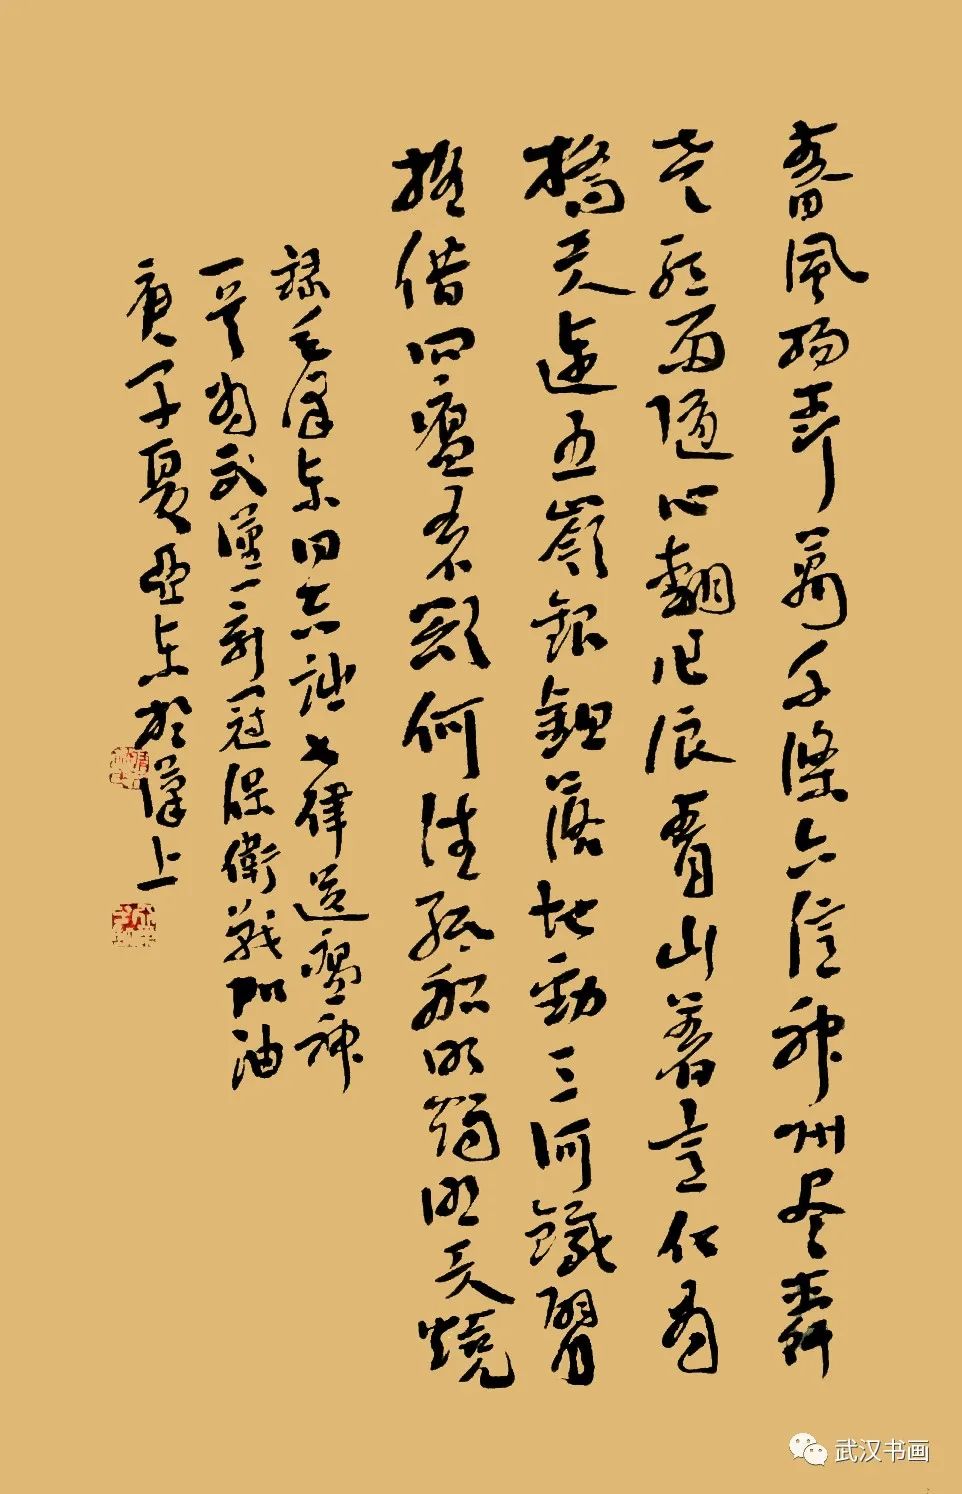 春風楊柳萬千條六億神州尽舜
尧紅雨隨心翻作浪青山著意化为
橋天連五嶺銀鋤落地動三河鐵臂
摇借问瘟君欲何往紙船明燭照天燒
録毛澤东同志詩七律送瘟神
一首为武漢新冠保衛戰加油
庚子夏亞东於漢上
武汉书画